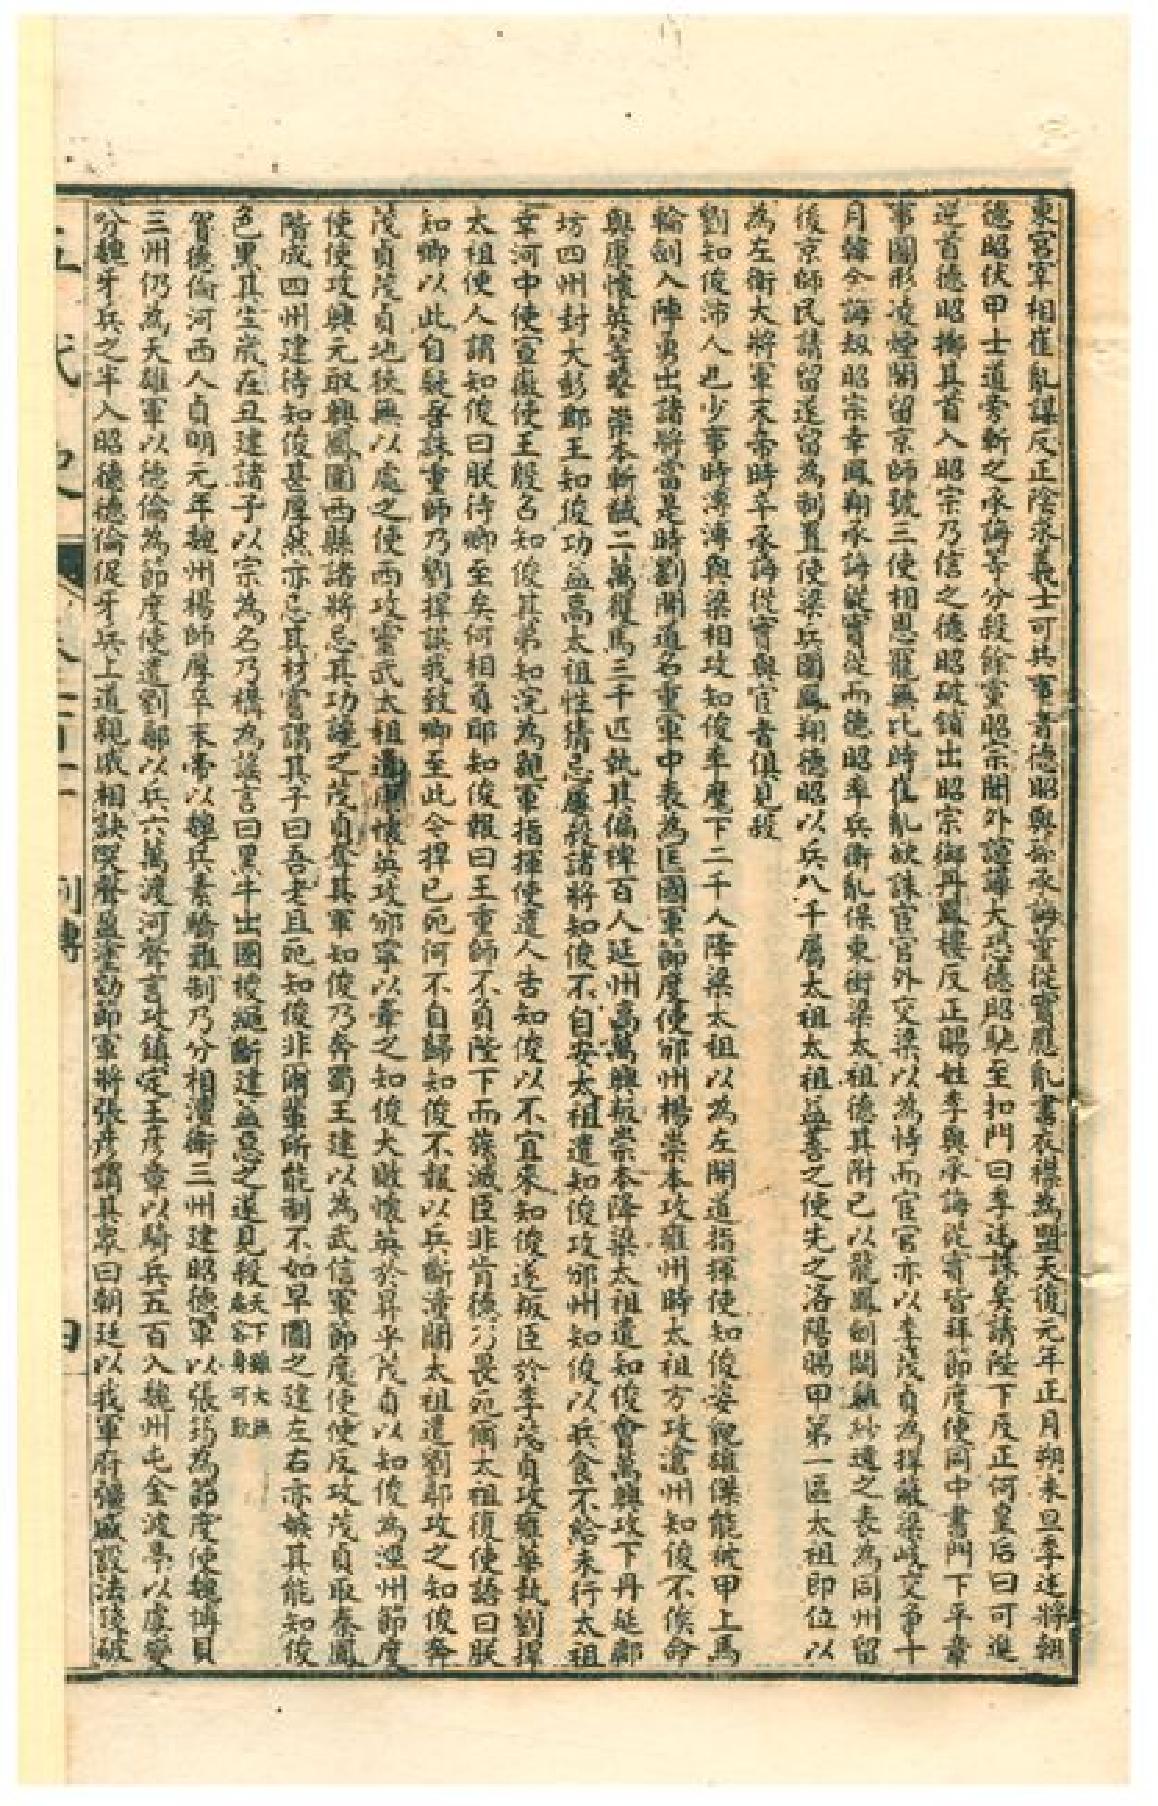 東宮宰相崔胤謀反正陰求義士可共事者德昭與孫承誨董從實應胤書衣襟為盟天復元年正月朔未旦季述將朝
德昭伏甲士道旁斬之承誨等分殺餘黨昭宗聞外諠譁大恐德昭馳至扣門曰季述誅矣請陛下反正何皇后曰可進
逆首德昭擲其首入昭宗乃信之德昭破鎖出昭宗御丹鳳樓反正賜姓李與承誨從實皆拜節度使同中書門下平章
事圖形凌煙閣留京師號三使相恩寵無比時崔胤欲誅宦官外交梁以為恃而宦官亦以李茂貞為捍蔽梁岐交爭十
月韓全誨劫昭宗幸鳳翔承誨從實從而德昭率兵衛胤保東街梁太祖德其附己以龍鳳劍鬪雞紗遺之表為同州留
後京師民請留遂留為制置使梁兵圍鳳翔德昭以兵八千屬太祖太祖益善之使先之洛陽賜甲第一區太祖即位以
為左衛大將軍末帝時卒承誨從實與宦者俱見殺
劉知俊沛人也少事時溥溥與梁相攻知俊率麾下二千人降梁太祖以為左開道指揮使知俊姿貌雄傑能被甲上馬
輪劍入陣勇出諸將當是時劉開道名重軍中表為匡國軍節度使邠州楊崇本攻雍州時太祖方攻滄州知俊不俟命
與康懷英等擊崇本斬馘二萬獲馬三千匹執其偏裨百人延州高萬興叛崇本降梁太祖遣知俊會萬興攻下丹延鄜
坊四州封大彭郡王知俊功益高太祖性猜忌屢殺諸將知俊不自安太祖遣知俊攻邠州知俊以兵食不給未行太祖
幸河中使宣徽使王殷召知俊其弟知浣為親軍指揮使遣人告知俊以不宜來知俊遂叛臣於李茂貞攻雍華執劉捍
太祖使人謂知俊曰朕待卿至矣何相負耶知俊報曰王重師不負陛下而族滅臣非背德乃畏死爾太祖復使語曰朕
知卿以此自疑吾誅重師乃劉捍誤我致卿至此今捍已死何不自歸知俊不報以兵斷潼關太祖遣劉鄩攻之知俊奔
茂貞茂貞地狹無以處之使西攻靈武太祖遣康懷英攻邠寧以牽之知俊大敗懷英於昇平茂貞以知俊為涇州節度
使使攻興元取興鳳圍西縣諸將忌其功譖之茂貞奪其軍知俊乃奔蜀王建以為武信軍節度使使反攻茂貞取秦鳳
階成四州建待知俊甚厚然亦忌其材嘗謂其子曰吾老且死知俊非爾輩所能制不如早圖之建左右亦嫉其能知俊
色黑其生歲在丑建諸子以宗為名乃構為謠言曰黑牛出圈椶繩斷建益惡之遂見殺天下雖大無處容身可歎
賀德倫河西人貞明元年魏州楊師厚卒末帝以魏兵素驕難制乃分相澶衛三州建昭德軍以張筠為節度使魏博貝
三州仍為天雄軍以德倫為節度使遣劉鄩以兵六萬渡河聲言攻鎮定王彥章以騎兵五百入魏州屯金波亭以虞變
分魏牙兵之半入昭德德倫促牙兵上道親戚相訣哭聲盈塗効節軍將張彥謂其眾曰朝廷以我軍府彊盛設法殘破
列傳
四